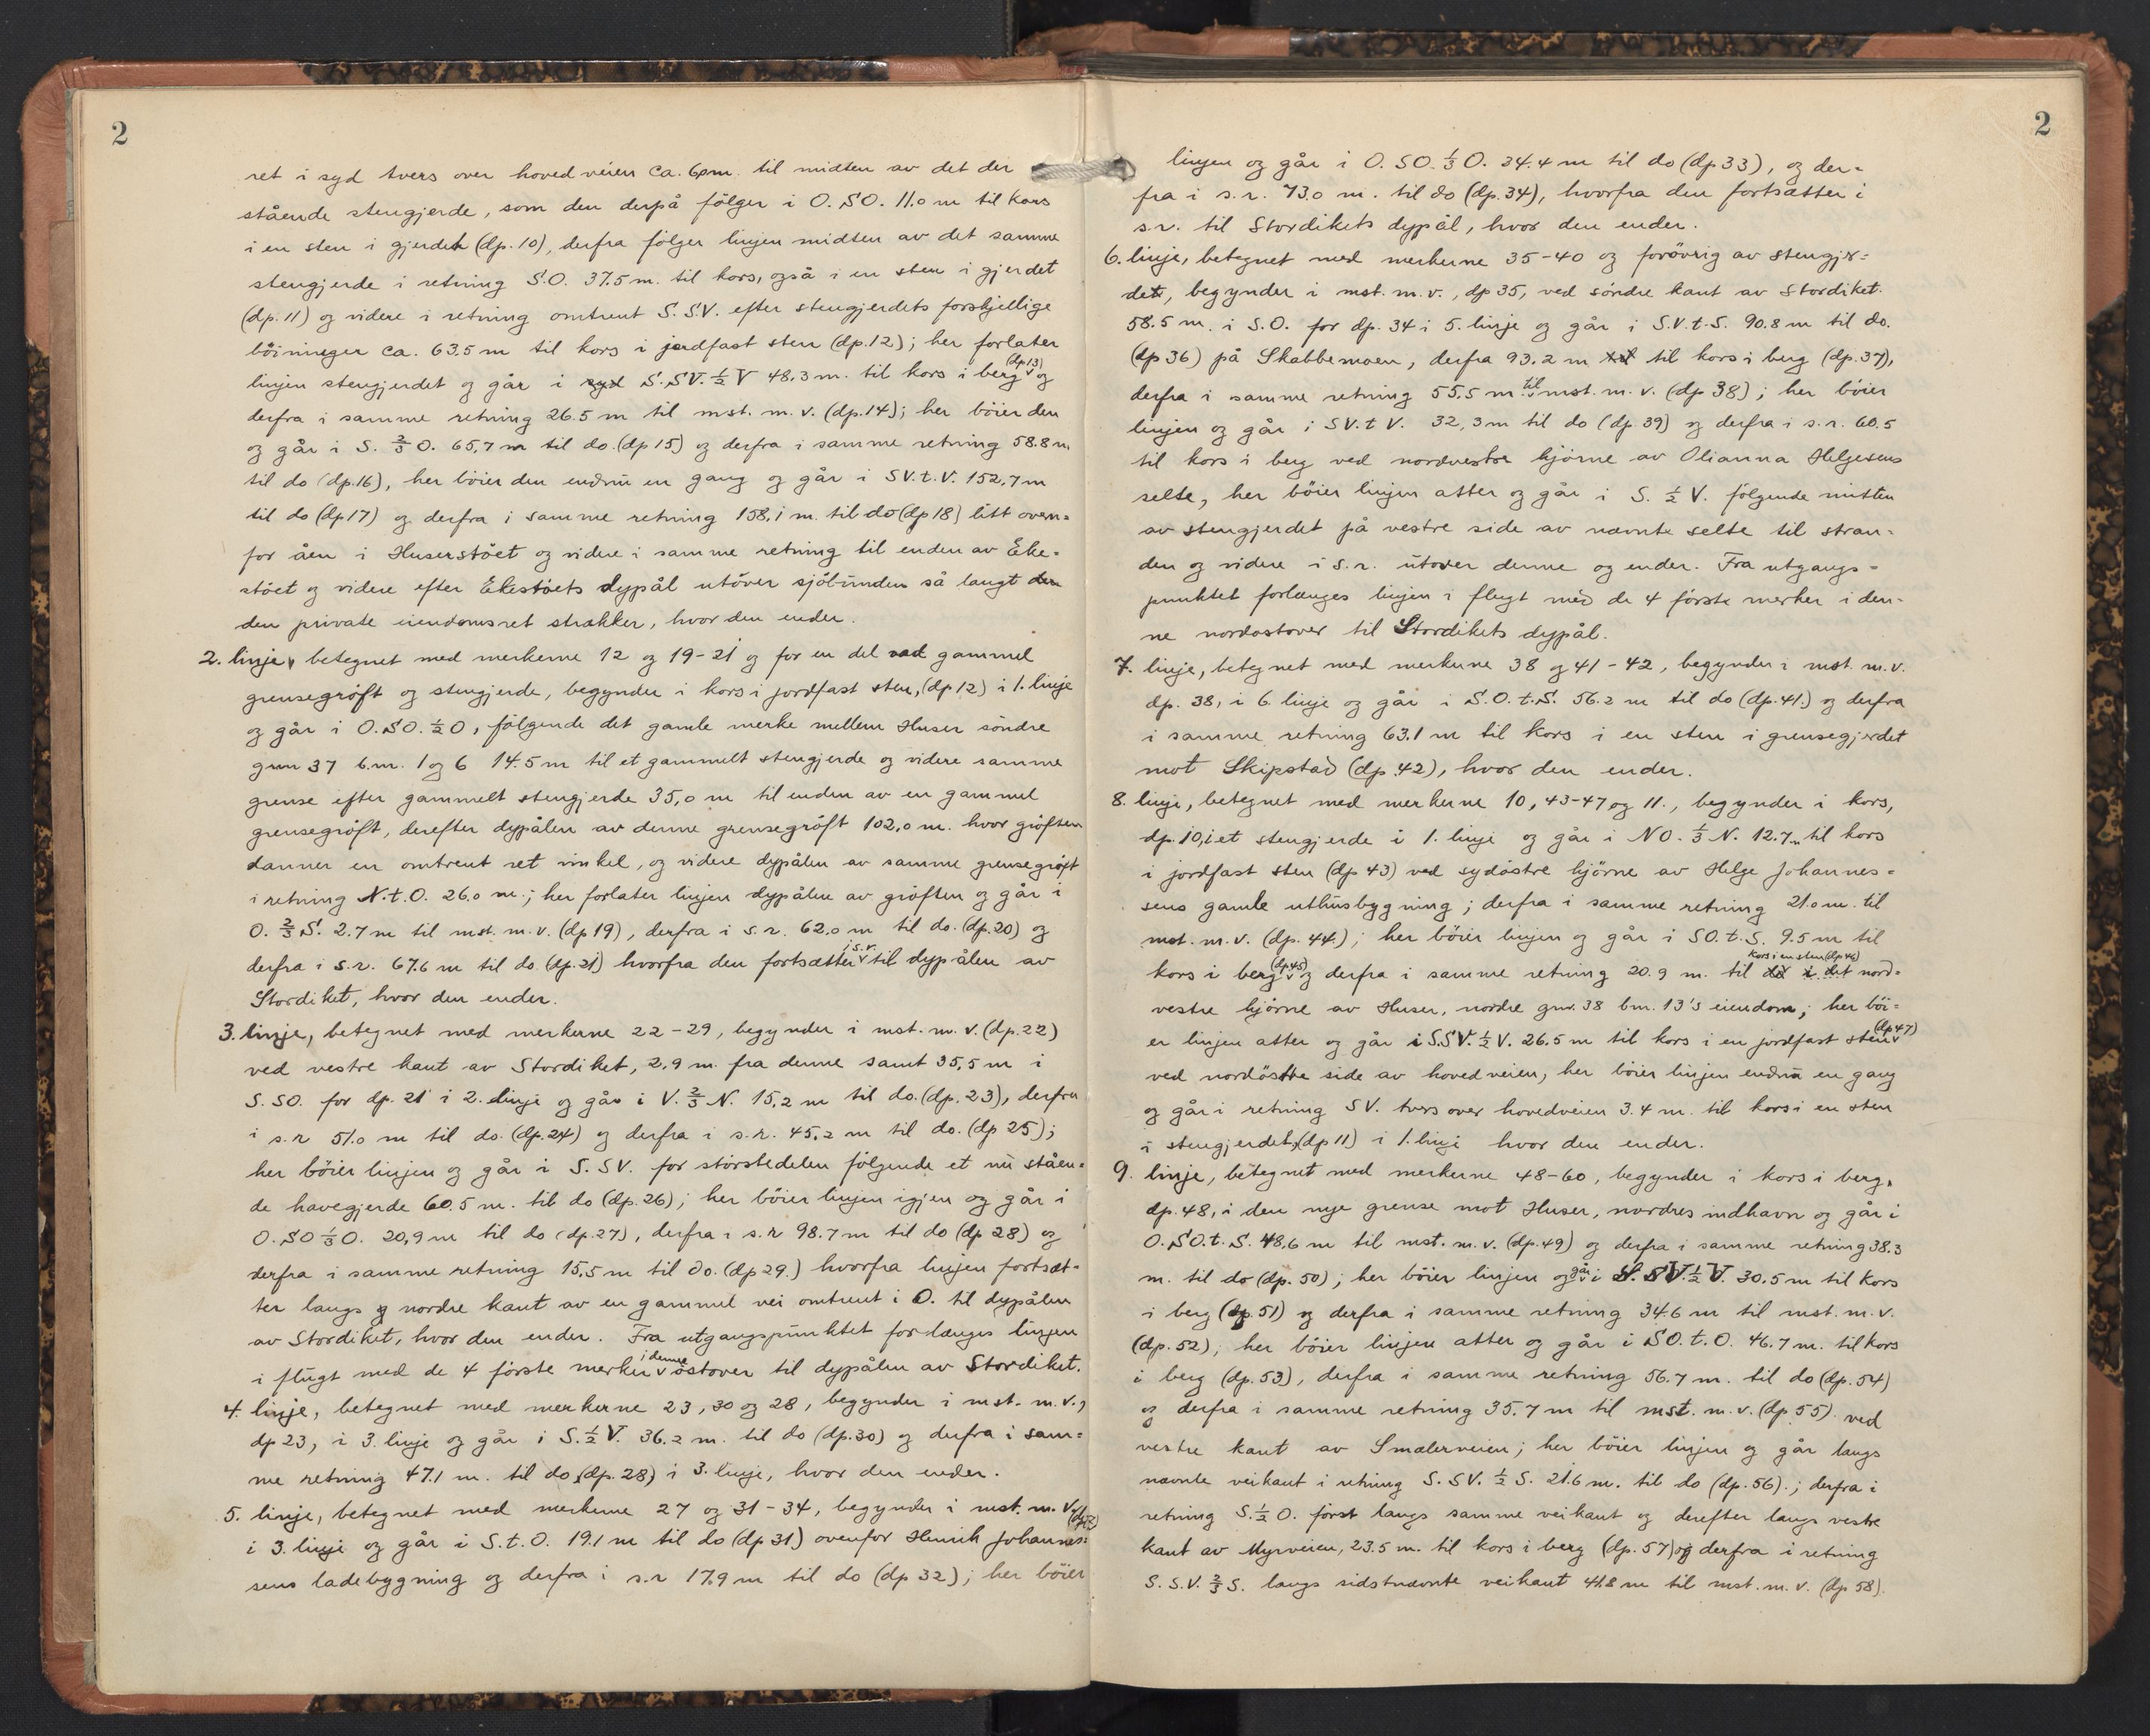 2
ret i syd tvers over hovedveien ca. 6,0 m. til midten av det der
stående stengjerde, som den derpå følger i O. SO. 11.0 m til kors
i en sten i gjerdet (dp. 10), derfra følger linjen midten av det samme
stengjerde i retning S.O. 37.5 m. til kors, også i en sten i gjerdet
(dp. 11) og videre i retning omtrent S. SV. efter stengjerdets forskjellige
böininger ca. 63.5 m til kors i jordfast sten (dp. 12); her forlater
linjen stengjerdet og går i syd S. SV. ½ V 48.3 m. til kors i berg (dp 13) og
derfra i samme retning 26.5 m til mst. m. v. (dp. 14); her böier den
og går i S. ⅔ O. 65,7 m til do. (dp 15) og derfra i samme retning 58.8 m
til do (dp. 16), her böier den endnu en gang og går i SV. t. V. 152,7 m
til do (dp 17) og derfra i samme retning 158,1 m. til do (dp 18) litt oven-
for åen i Huserstöet og videre i samme retning til enden av Eke-
stöet og videre efter Ekestöets dypål utöver sjöbunden så langt den
den private eiendomsret strækker, hvor den ender.
2. linje, betegnet med merkerne 12 og 19-21 og for en del ved gammel
grensegröft og stengjerde, begynder i kors i jordfast sten, (dp 12) i 1. linje
og går i O. SO. ½ O, følgende det gamle merke mellem Huser söndre
gnr 37 b.nr. 1 og 6 14.5 m til et gammelt stengjerde og videre samme
grense efter gammelt stengjerde 35,0 m til enden av en gammel
grensegröft, derefter dypålen av denne grensegröft 102,0 m. hvor gröften
danner en omtrent ret vinkel, og videre dypålen av samme grensegröft
i retning N. t. O. 26.0 m.; her forlater linjen dypålen av gröften og går i
O. ⅔ S. 2.7 m til mst. m. v. (dp 19), derfra i s. r. 62.0 m til do. (dp. 20) og
derfra i s.r. 67.6 m til do (dp. 21) hvorfra den fortsætter i s.r. til dypålen av
Stordiket, hvor den ender.
3. linje, betegnet med merkerne 22-29, begynder i mst. m. v. (dp. 22)
ved vestre kant av Stordiket, 2,9 m. fra denne samt 35,5 m i
S. SO. for dp. 21 i 2. linje og går i V. ⅔ N. 15,2 m til do. (dp. 23), derfra
i s.r 51.0 m til do. (dp. 24) og derfra i s.r. 45.2 m til do. (dp 25);
her böier linjen og går i S. SV. for störstedelen följende et nu ståen-
de havegjerde 60.5 m. til do (dp. 26); her böier linjen igjen og går i
O. SO ⅓ O. 20,9 m til do (dp. 27), derfra i s. r 98.7 m til do (dp 28) og
derfra i samme retning 15,5 m til do. (dp 29.) hvorfra linjen fortsæt-
ter langs g nordre kant av en gammel vei omtrent i O. til dypålen
av Stordiket, hvor den ender. Fra utgangspunktet forlænges linjen
i flugt med de 4 første merker i denne östover til dypålen av Stordiket.
4. linje, betegnet med merkerne 23, 30 og 28, begynder i mst. m. v.,
dp 23, i 3. linje og går i S. ½ V. 36.2 m. til do (dp. 30) og derfra i sam-
me retning 47.1 m. til do (dp. 28) i 3. linje, hvor den ender.
5. linje, betegnet med merkerne 27 og 31-34, begynder i mst. m. v (dp 27)
i 3. linje og går i S. t. O. 19.1 m til do (dp 31) ovenfor Henrik Johannes-
sens ladebygning og derfra i s.r 17.9 m til do (dp 32); her böier
2
linjen og går i O. SO. ⅓ O. 34.4 m til do (dp 33), og der-
fra i s.r. 73.0 m. til do (dp. 34), hvorfra den fortsætter i
s.r. til Stordikets dypål, hvor den ender.
6. linje, betegnet med merkerne 35-40 og forövrig av stengjer-
det, begynder i mst. m. v., dp 35, ved söndre kant av Stordiket.
58.5 m. i S.O. for dp. 34 i 5. linje og går i S.V. t. S. 90.8 m til do.
(dp 36) på Skabbemoen, derfra 93.2 m til til kors i berg (dp. 37),
derfra i samme retning 55,5 m til mst. m. v. (dp 38); her böier
linjen og går i SV. t V. 32,3 m til do (dp. 39) og derfra i s. r. 60.5
til kors i berg ved nordvestre hjörne av Olianna Helgesens
selte, her böier linjen atter og går i S. ½ V. følgende mitten
av stengjerdet på vestre side av nævnte selte til stran-
den og videre i s.r. utover denne og ender. Fra utgangs-
punktet forlænges linjen i flugt med de 4 första merker i den-
ne nordostover til Stordikets dypål.
7. linje, betegnet med merkerne 38 og 41-42, begynder i mst. m. v.
dp. 38, i 6. linje og går i S.O. t. S. 56.2 m til do (dp. 41.) og derfra
i samme retning 63.1 m til kors i en sten i grensegjerdet
mot Skipstad (dp. 42), hvor den ender.
8. linje, betegnet med merkerne 10, 43-47 og 11., begynder i kors,
dp. 10, i et stengjerde i 1. linje og går i NO. ⅓ N. 12.7 m til kors
i jordfast sten (dp 43) ved sydöstre hjörne av Helge Johannes-
sens gamle uthusbygning; derfra i samme retning 21.0 m. til
mst. m. v. (dp. 44.); her böier linjen og går i SO. t. S. 9.5 m til
kors i berg (dp 45) og derfra i samme retning 20.9 m. til do i det kors i en sten (dp 46) nord-
vestre hjörne av Huser, nordre gnr. 38 bnr. 13's eiendom; her böi-
er linjen atter og går i S.SV. ½ V. 26.5 m til kors i en jordfast sten (dp 47)
ved nordöstre side av hovedveien, her böier linjen endnu en gang
og går i retning SV. tvers over hovedveien 3.4 m. til kors i en sten
i stengjerdet, (dp 11) i 1. linje hvor den ender.
9. linje, betegnet med merkerne 48-60, begynder i kors i berg,
dp. 48, i den nye grense mot Huser, nordres indhavn og går i
O. SO. t. S. 48,6 m til mst. m. v. (dp. 49) og derfra i samme retning 38.3
m. til do (dp. 50); her böier linjen og går i S. SV. ½ V. 30.5 m til kors
i berg (dp 51) og derfra i samme retning 34.6 m til mst. m. v.
(dp. 52); her böier linjen atter og går i SO. t. O. 46.7 m. til kors
i berg (dp. 53), derfra i samme retning 56.7 m. til do (dp. 54)
og derfra i samme retning 35.7 m til mst. m. v. (dp. 55) ved
vestre kant av Smalerveien; her böier linjen og går langs
nævnte veikant i retning S. SV. ½ S. 21.6 m. til do (dp. 56).; derfra i
retning S. ½ O. først langs samme veikant og derefter langs vestre
kant av Myrveien, 23.5 m. til kors i berg (dp. 57) og derfra i retning
S. S.V. ⅔ S. langs sidstnævnte veikant 41.8 m til mst. m. v. (dp 58).